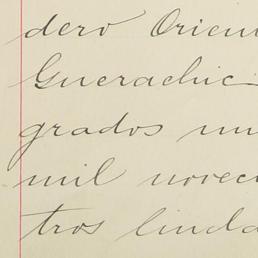 dero Orien
Guerachic
grados nu
mil novec
tros linda